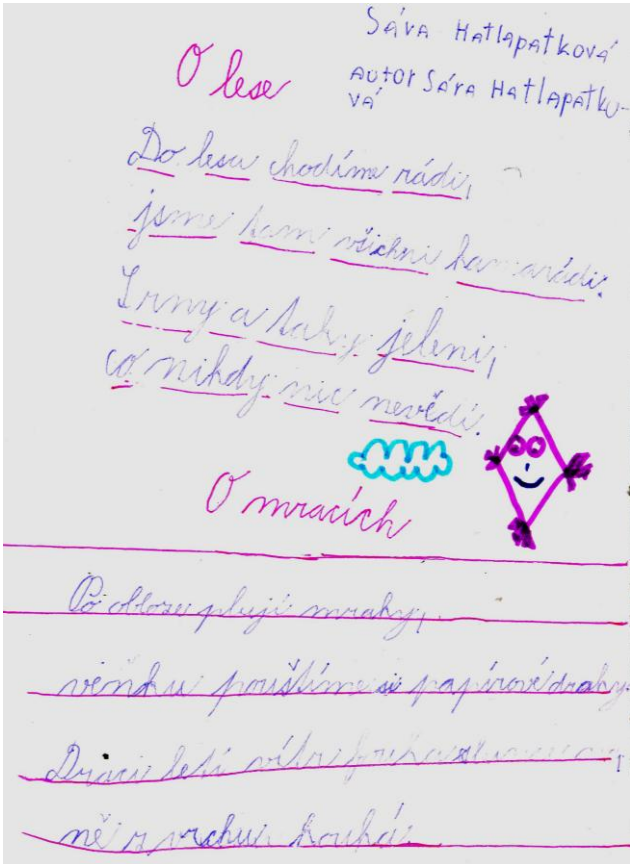 Sára Hatlapatková
O lese
autor Sára Hatlapatko-
vá
Do lesa chodíme rádi,
jsme tam všichni kamarádi.
Srny a taky jeleni,
co nikdy nic nevědí.
O mracích
Po obloze plují mraky,
venku pouštíme si papírové draky.
Draci letí vítr fouká
ně z vrchu kouká.